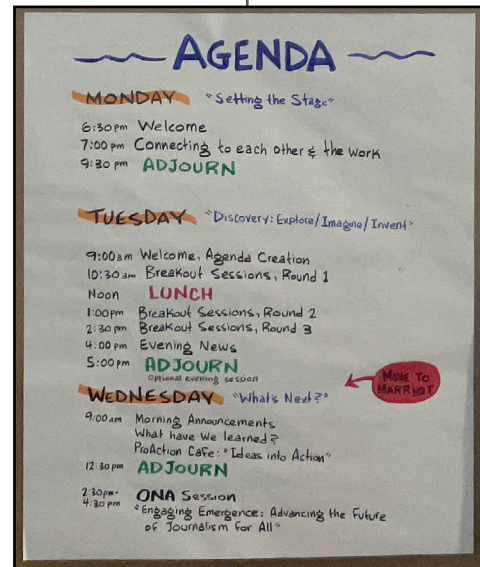 AGENDA
MONDAY "Setting the Stage"
6:30pm Welcome
7:00pm Connecting to each other & the work
9:30pm ADJOURN
TUESDAY "Discovery: Explore/Imagine/Invent"
9:00am Welcome, Agenda Creation
10:30am Breakout Sessions, Round 1
Noon LUNCH
1:00pm Breakout Sessions, Round 2
2:30pm Breakout Sessions, Round 3
4:00pm Evening News
5:00pm ADJOURN
Optional evening session
MOVE TO
MARRIOT
WEDNESDAY "What's Next?"
9:00am Morning Announcements
What have We learned?
ProAction Cafe: "Ideas into Action"
12:30pm ADJOURN
2:30pm-
4:30pm ONA Session
"Engaging Emergence: Advancing the Future
of Journalism for All"